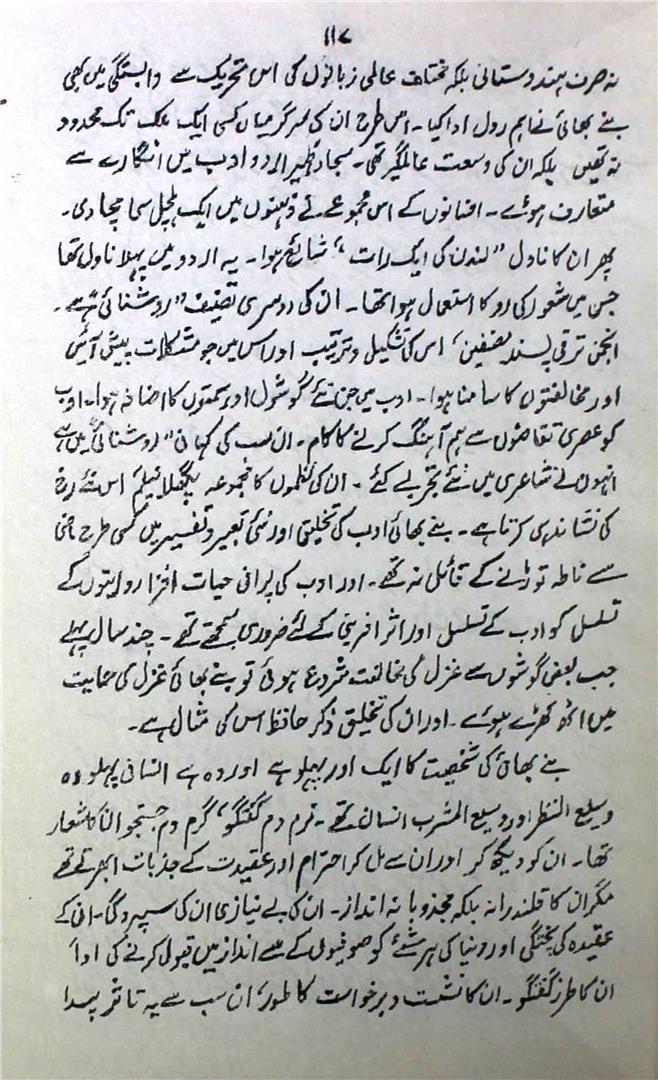 ۱۱۷
نہ صرف ہندوستانی بلکہ مختلف عالمی زبانوں کی اس تحریک سے وابستگی میں بھی
بنے بھائی نے اہم رول ادا کیا۔ اس طرح ان کی سرگرمیاں کسی ایک ملک تک محدود
نہ تھیں بلکہ ان کی وسعت عالمگیر تھی۔ سجاد ظہیر اردو ادب میں انگارے سے
متعارف ہوئے۔ افسانوں کے اس مجموعے نے ذہنوں میں ایک ہلچل سی مچا دی۔
پھر ان کا ناول "لندن کی ایک رات" شائع ہوا۔ یہ اردو میں پہلا ناول تھا
جس میں شعور کی رو کا استعمال ہوا تھا۔ ان کی دوسری تصنیف "روشنائی" ہے۔
انجمن ترقی پسند مصنفین، اس کی تشکیل و ترتیب اور اس میں جو مشکلات پیش آئیں
اور مخالفتوں کا سامنا ہوا۔ ادب میں جن نئے گوشوں اور سمتوں کا اضافہ ہوا۔ ادب
کو عصری تقاضوں سے ہم آہنگ کرنے کا کام۔ ان سب کی کہانی "روشنائی" میں ہے
انہوں نے شاعری میں نئے تجربے کئے۔ ان کی نظموں کا مجموعہ پگھلا نیلم اس نئے رخ
کی نشاندہی کرتا ہے۔ بنے بھائی ادب کی تخلیق اور نئی تعبیر و تفسیر میں کسی طرح ماضی
سے ناطہ توڑنے کے قائل نہ تھے۔ اور ادب کی پرانی حیات افزا روایتوں کے
تسلسل کو ادب کے تسلسل اور اثر آفرینی کے لئے ضروری سمجھتے تھے۔ چند سال پہلے
جب بعض گوشوں سے غزل کی مخالفت شروع ہوئی تو بنے بھائی غزل کی حمایت
میں اٹھ کھڑے ہوئے۔ اور ان کی تخلیق ذکر حافظ اس کی مثال ہے۔
بنے بھائی کی شخصیت کا ایک اور پہلو ہے اور وہ ہے انسانی پہلو وہ
وسیع النظر اور وسیع المشرب انسان تھے۔ نرم دم گفتگو، گرم دم جستجو ان کا شعار
تھا۔ ان کو دیکھ کر اور ان سے مل کر احترام اور عقیدت کے جذبات ابھرتے تھے
مگر ان کا قلندرانہ بلکہ مجذوبانہ انداز۔ ان کی بے نیازی ان کی سپردگی۔ ان کے
عقیدہ کی پختگی اور دنیا کی ہر شئے کو صوفیوں کے سے انداز میں قبول کرنے کی ادا
ان کا طرز گفتگو۔ ان کا نشست و برخواست کا طور، ان سب سے یہ تاثر پیدا